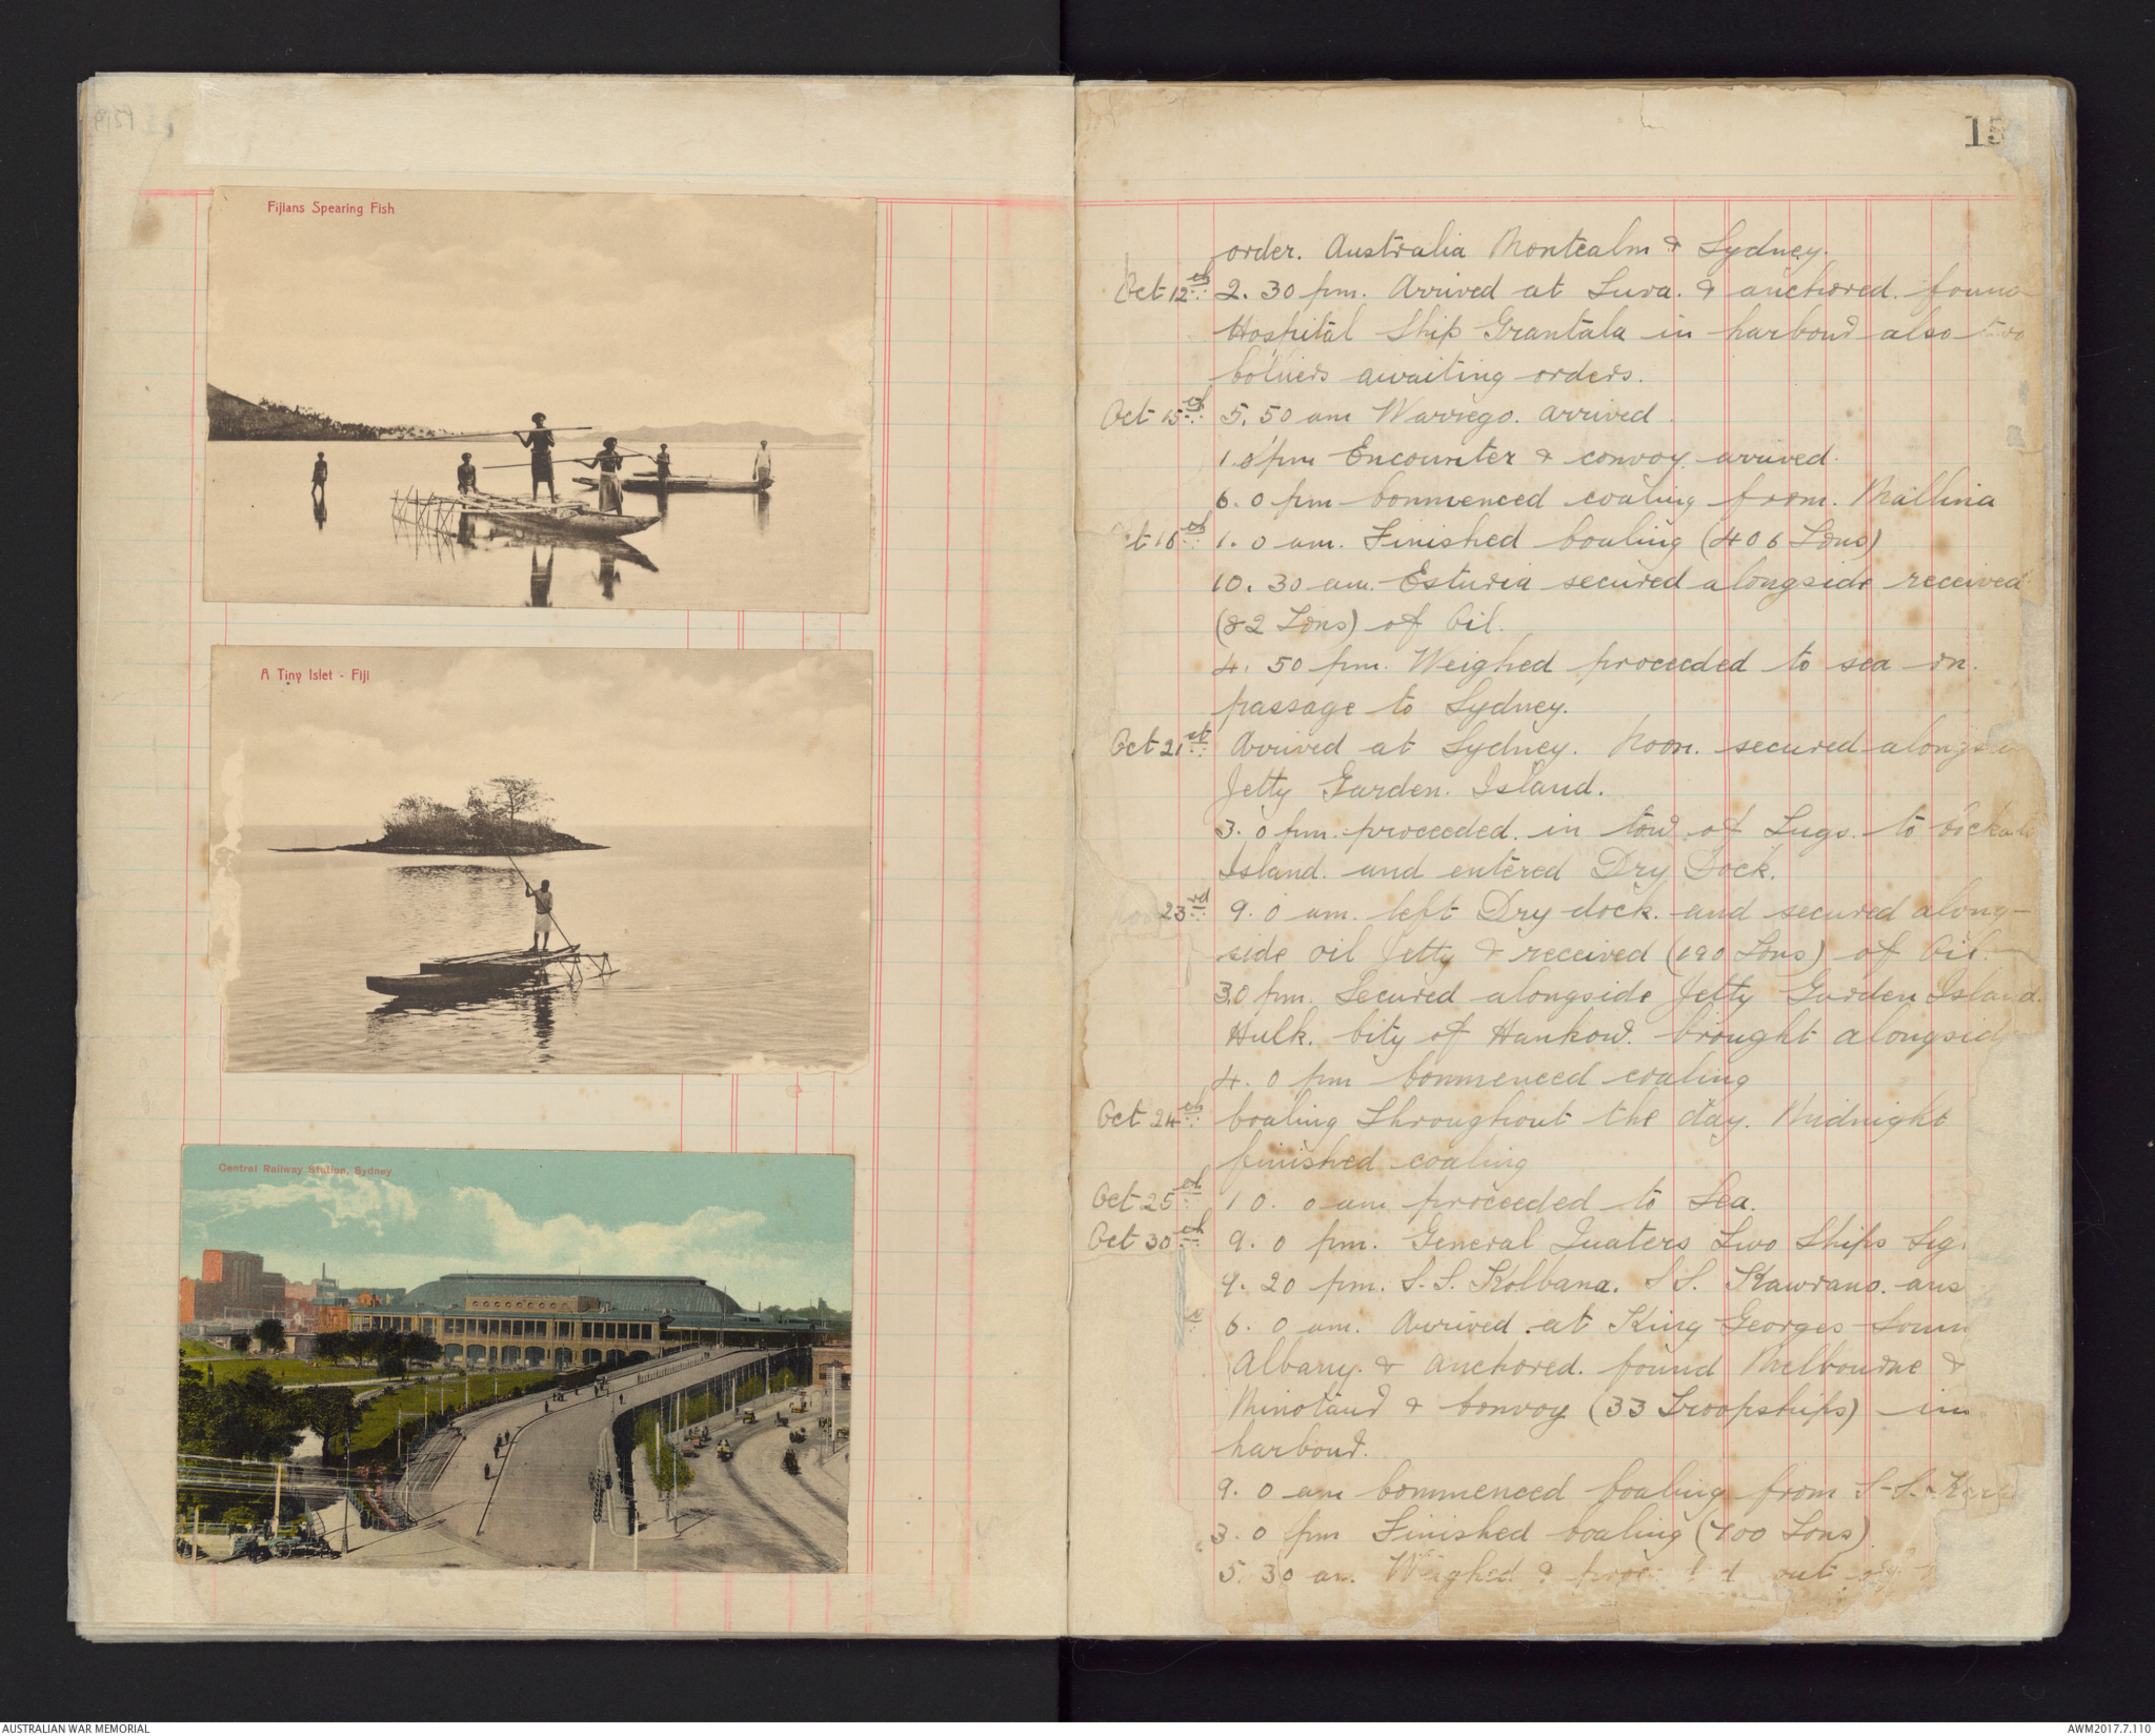 Fijians Spearing Fish
A Tiny Islet - Fiji
Central Railway Station, Sydney
15
order. Australia Montcalm & Sydney.
Oct 12th 2. 30 pm. Arrived at Suva. & anchored. found
Hospital Ship Grantala in harbour also two
Colliers awaiting orders.
Oct 15th 5. 50 am Warrego. arrived.
1.0 pm Encounter & convoy arrived.
6. 0 pm Commenced coaling from. Mallina
t 16th 1. 0 am. Finished Coaling (406 Tons)
10. 30 am. Esturia secured alongside received
(82 Tons) of Oil.
4. 50 pm. Weighed proceeded to sea on.
passage to Sydney.
Oct 21st Arrived at Sydney. Noon. secured alongs
Jetty Garden. Island.
3. 0 pm. proceeded. in tow of Tugs. to Cockato
Island. and entered Dry Dock.
23rd 9. 0 am. left Dry dock. and secured along-
side oil Jetty & received (190 Tons) of Oil.
3.0 pm. Secured alongside Jetty Garden Island.
Hulk. City of Hankow. brought alongsid
4. 0 pm Commenced coaling
Oct 24th Coaling Throughout the day. Midnight
finished coaling
Oct 25th 10. 0 am proceeded to Sea.
Oct 30th 9. 0 pm. General Quaters Two Ships Sig.
9. 20 pm. S.S. Kolbana. S S. Kawrano. ans
6. 0 am. Arrived. at King Georges Soun
Albany. & anchored. found Melbourne &
Minotaur & Convoy (33 Troopships) in
harbour.
9. 0 am Commenced Coaling from S-S.
3. 0 pm Finished Coaling (700 Tons)
5. 30 am. Weighed & out
AUSTRALIAN WAR MEMORIAL
AWM2017.7.110